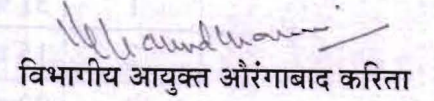 विभागीय आयुक्त औरंगाबाद करिता